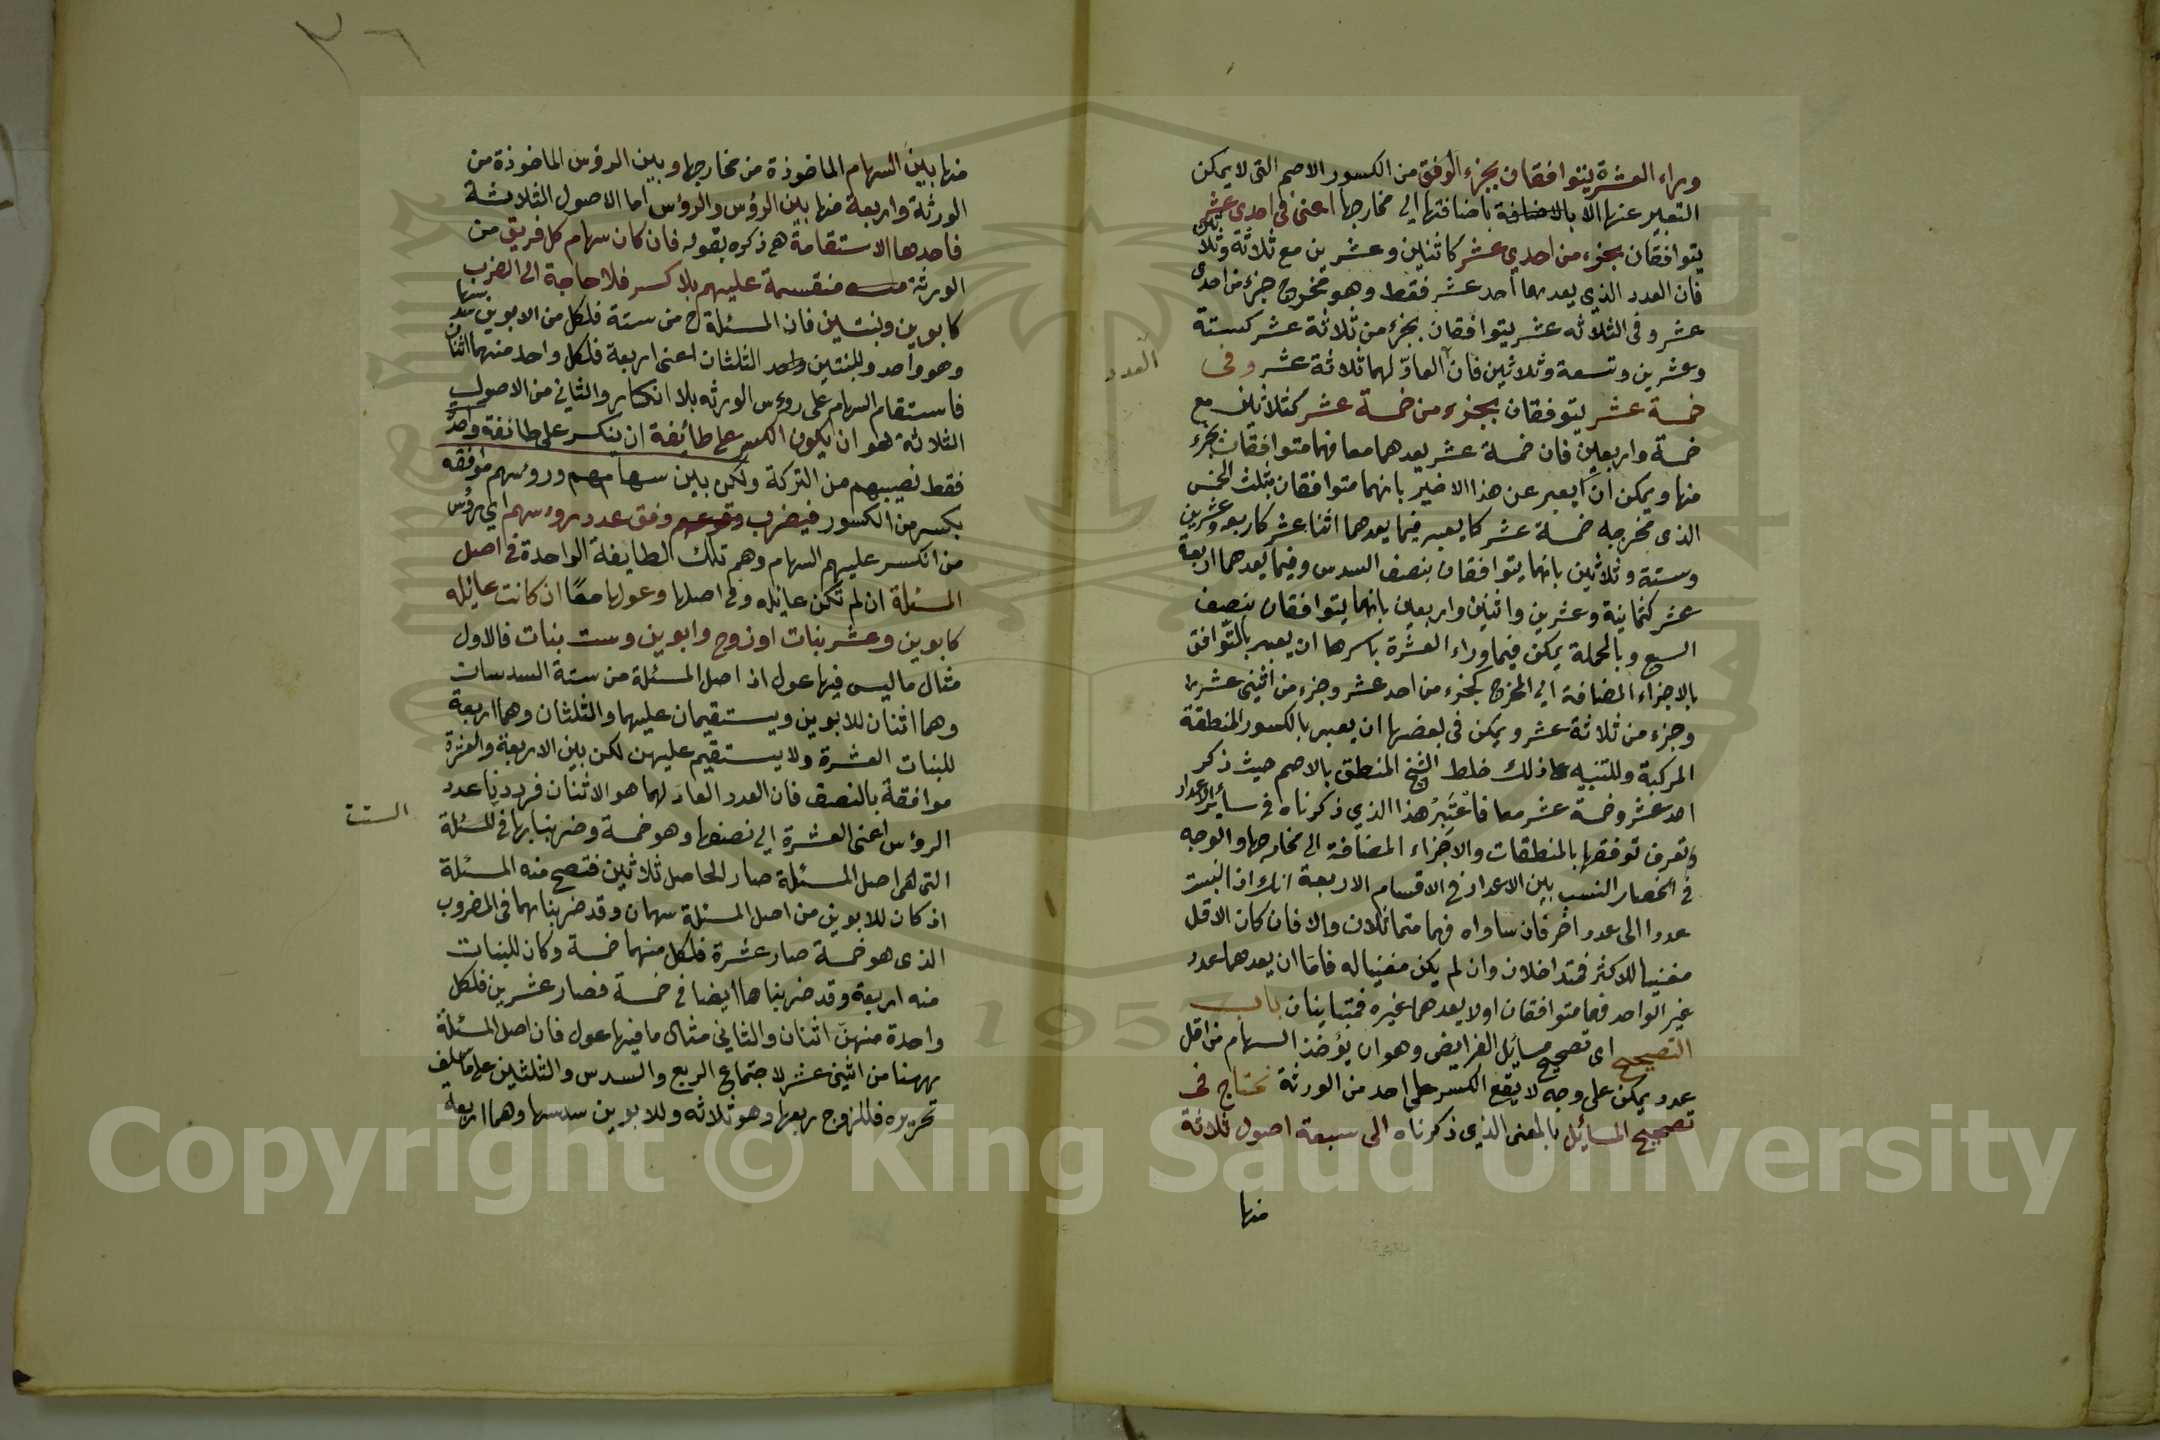 وراء العشرة يتوافقان بجزء الوفق من الكسور الاصم التى لا يمكن
التعبير عنها الا بالاضافة باضافتها الى مخارجها اعنى فى احدى عشر
يتوافقان بجزء من احدى عشر كاثنين وعشرين مع ثلاثة وثلاثين
فان العدد الذى يعدهما احد عشر فقط وهو مخرج جزء من احدى
عشر وفى الثلاثه عشر يتوافقان بجزء من ثلاثة عشر كستة
وعشرين وتسعة وثلاثين فان العادّ لهما ثلاثة عشر وفى
العدد
خمسة عشر يتوفقان بجزء من خمسة عشر كثلاثين مع
خمسة واربعين فان خمسة عشر يعدهما معا فهما متوافقان بجزء
منها ويمكن ان يعبر عن هذا الاخير بانهما متوافقان بثلث الخمس
الذى مخرجه خمسة عشر كما يعبر فيما يعدهما اثنا عشر كاربعه وعشرين
وستة وثلاثين بانهما يتوافقان بنصف السدس وفيما يعدهما اربعة
عشر كثمانية وعشرين واثنين واربعين بانهما يتوافقان بنصف
السبع وبالجملة يمكن فيما وراء العشرة باسرها ان يعبر بالتّوافق
بالاجزاء المضافة الى المخرج كجزء من احد عشر وجزء من اثنى عشر
وجزء من ثلاثة عشر ويمكن فى بعضها ان يعبر بالكسور المنطقة
المركبة وللتنبيه على ذلك خلط الشيخ المنطق بالاصم حيث ذكر
احد عشر وخمسة عشر معا فاعتبر هذا الذي ذكرناه فى سائر الاعداد
وتعرف توفقها بالمنطقات والاجزاء المضافة الى مخارجها والوجه
فى انحصار النسب بين الاعداد فى الاقسام الاربعة انك اذا نسبت
عددا الى عدد اخر فان ساواه فهما متماثلان والا فان كان الاقل
مفنيا للاكثر فمتداخلان وان لم يكن مفنيا له فامّا ان يعدهما عدد
غير الواحد فهما متوافقان اولا يعدهما غيره فمتباينان باب
التصحيح اى تصحيح مسائل الفرايض وهو ان يؤخذ السهام من اقل
عدد يمكن على وجه لا يقع الكسر على احد من الورثة نحتاج فى
تصحيح المسائل بالمعنى الذى ذكرناه الى سبعة اصول ثلاثة
منها
٢٦
منها بين السهام الماخوذة من مخارجها وبين الرؤس الماخوذة من
الورثة واربعة منها بين الرؤس والرؤس اما الاصول الثلاثة
فاحدها الاستقامة هى ذكره بقوله فان كان سهام كل فريق من
الورثة منقسمة عليهم بلا كسر فلا حاجة الى الضرب
كابوين وبنتين فان المسئلة ح من ستة فلكل من الابوين سدسها
وهو واحد وللبنتين الثلثان اعنى اربعة فلكل واحد منهما اثنان
فاستقام السهام على روءس الورثه بلا انكسار والثاني من الاصول
الثلاثة هو ان يكون الكسر على طائفة ان ينكسر على طائفة واحدة
فقط نصيبهم من التركة ولكن بين سهامهم وروسهم موافقه
بكسر من الكسور فيضرب وفق عدد روءسهم اى رؤس
من انكسر عليهم السهام وهم تلك الطايفة الواحدة فى اصل
المسئلة ان لم تكن عايله وفى اصلها وعولها معًا ان كانت عايله
كابوين وعشر بنات او زوج وابوين وست بنات فالاول
مثال ما ليس فيها عول اذ اصل المسئلة من ستة السدسات
وهما اثنان للابوين ويستقيمان عليهما والثلثان وهما اربعة
للبنات العشرة ولا يستقيم عليهن لكن بين الاربعة والعشرة
موافقة بالنصف فان العدد العاد لهما هو الاثنان فرددنا عدد
الرؤس اعنى العشرة الى نصفها وهو خمسة وضربناها فى المسئلة
التى هى اصل المسئلة صار الحاصل ثلاثين فتصح منه المسئلة
اذ كان للابوين من اصل المسئلة سهمان وقد ضربناهما فى المضروب
الذى هو خمسة صار عشرة فلكل منهما خمسة وكان للبنات
منه اربعة وقد ضربناها ايضا فى خمسة فصار عشرين فلكل
واحدة منهنّ اثنان والثاني مثال ما فيها عول فان اصل المسئلة
ههنا من اثنى عشر لاجتماع الربع والسدس والثلثين على ما سلف
تحريره فللزوج ربعها وهو ثلاثه وللابوين سدسها وهما اربعة
Copyright © King Saud University
1957